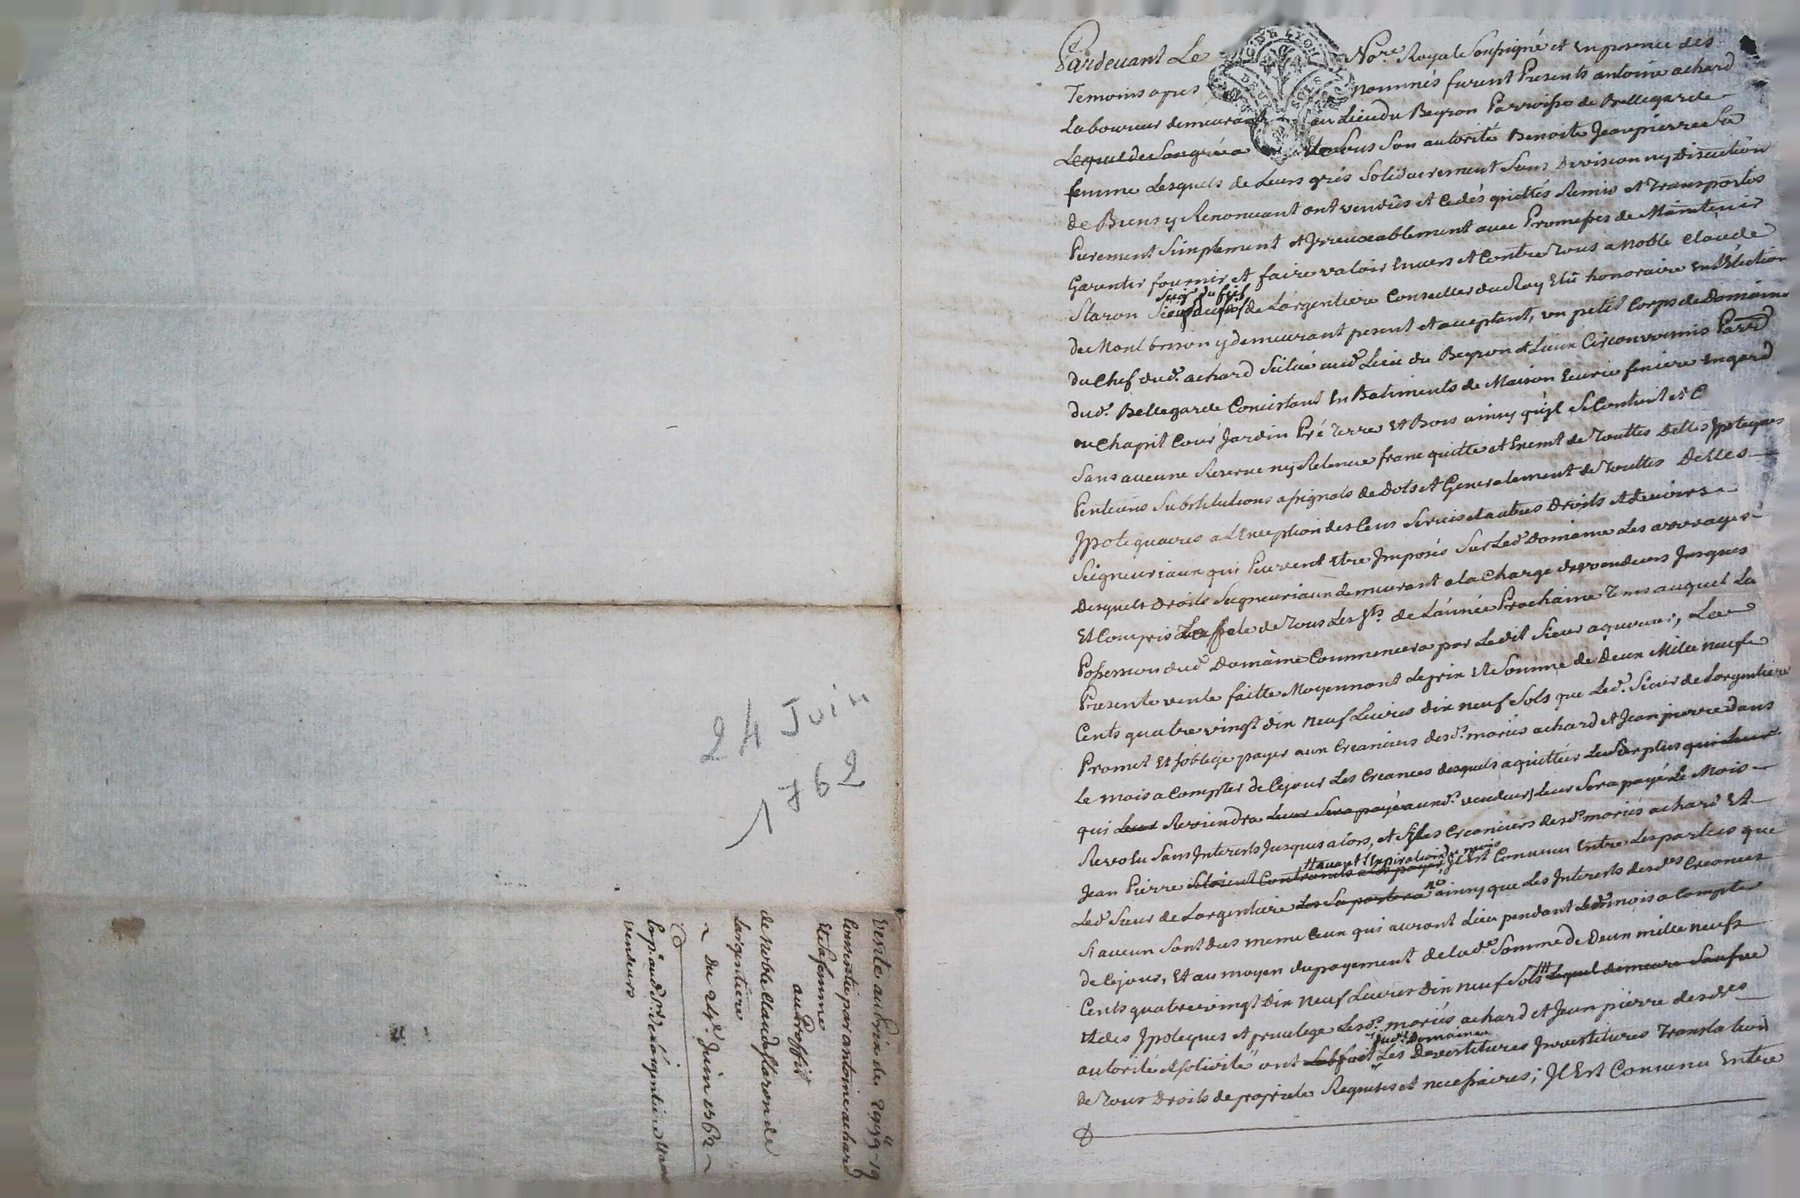 24 Juin
1762
Vente au prix de 2999ᴸ - 19
Consentie par antoine achard
Et sa femme
au Proffit
de Noble Claude Staron de
Largentiere
Du 24e Juin 1762
vendeurs
GDE LYON
DEUX SOLS
Pardevant Le Nore. Royal Soussigné et En presence des
Temoins apres nommés furent Presents antoine achard
Laboureur demeurant au Lieu du Beyron Parroisse de Bellegarde
Et sous Son autorité Benoite Jeanpierre Sa
femme Lesquels de Leurs grés Solidairement Sans Division ny Discution
de Biens y Renonceant ont vendûs et Cedés quittés Remis et Transportés
Purement Simplement et Irrevocablement avec Promesses de Maintenir
Garentir fournir et faire valoir Envers et Contre Tous a Noble Claude
Staron de Largentiere Conseiller du Roy Elû honoraire En L'Election
de Montbrison y demeurant present et acceptant, un petit Corps de Domaine
du Chef dud. achard Scitué aud. Lieu du Beyron et Lieux Circonvoisins Parr.
dud. Bellegarde Consistant En Batiments de Maison Ecurie feniere
ou Chapit Cour Jardin Pré Terre Et Bois ainsy qu'il Se Contient et C
Sans aucune Reserve ny Retenue franc quitte et Exemt de Touttes Dettes Ipoteques
Pentions Substitutions assignats de Dots et Generalement de Touttes Dettes
Ipotequaires a L'Exeption des Cens Servis et autres Droits et devoirs
Seigneuriaux qui Peuvent Etre Imposés Sur Led. Domaine Les arrerages
Desquels Droits Seigneuriaux demeurant a la Charge des vendeurs Jusques
Et Compris La fete de Tous Les Sts. de L'année Prochaine Tems auquel La
Possession dud. Domaine Commencera par Ledit Sieur aquereur, La
Presente vente faitte Moyennant Le prix Et Somme de Deux Mille neuf
Cents quatre vingt dix Neuf Livres dix neuf Sols que Led. Sieur de Largentiere
Promet Et S'oblige payer aux Creanciers desd. mariés achard et Jean pierre dans
Le mois a Compter de Ce jour Les Creances desquels acquittées Le Surplus
qui Reviendra Leur Sera payé Le Mois
Revolu Sans Interests Jusques alors, et Si Les Creanciers desd. mariés achard Et
Jean Pierre avant L'Expiration du mois Il Est Convenu Entre Les parties que
Led. Sieur de Largentiere ainsy que Les Interests desd. Creances
Si aucun Sont dus meme Ceux qui auront Lieu pendant Led. mois a Compter
de Ce jour, Et au moyen du payement de lad. Somme de Deux mille neuf
Cents quatre vingt Dix Neuf Livres Dix neuf Sols Lequel demeure Sous
Et des Ipoteques et privilege Lesd. mariés achard et Jean pierre desdes
autorité et solidité ont Les Devestitures Investitures Translation
dud. Domaine
de Tous Droits de proprieté Requises et necessaires; Il Est Convenu Entre